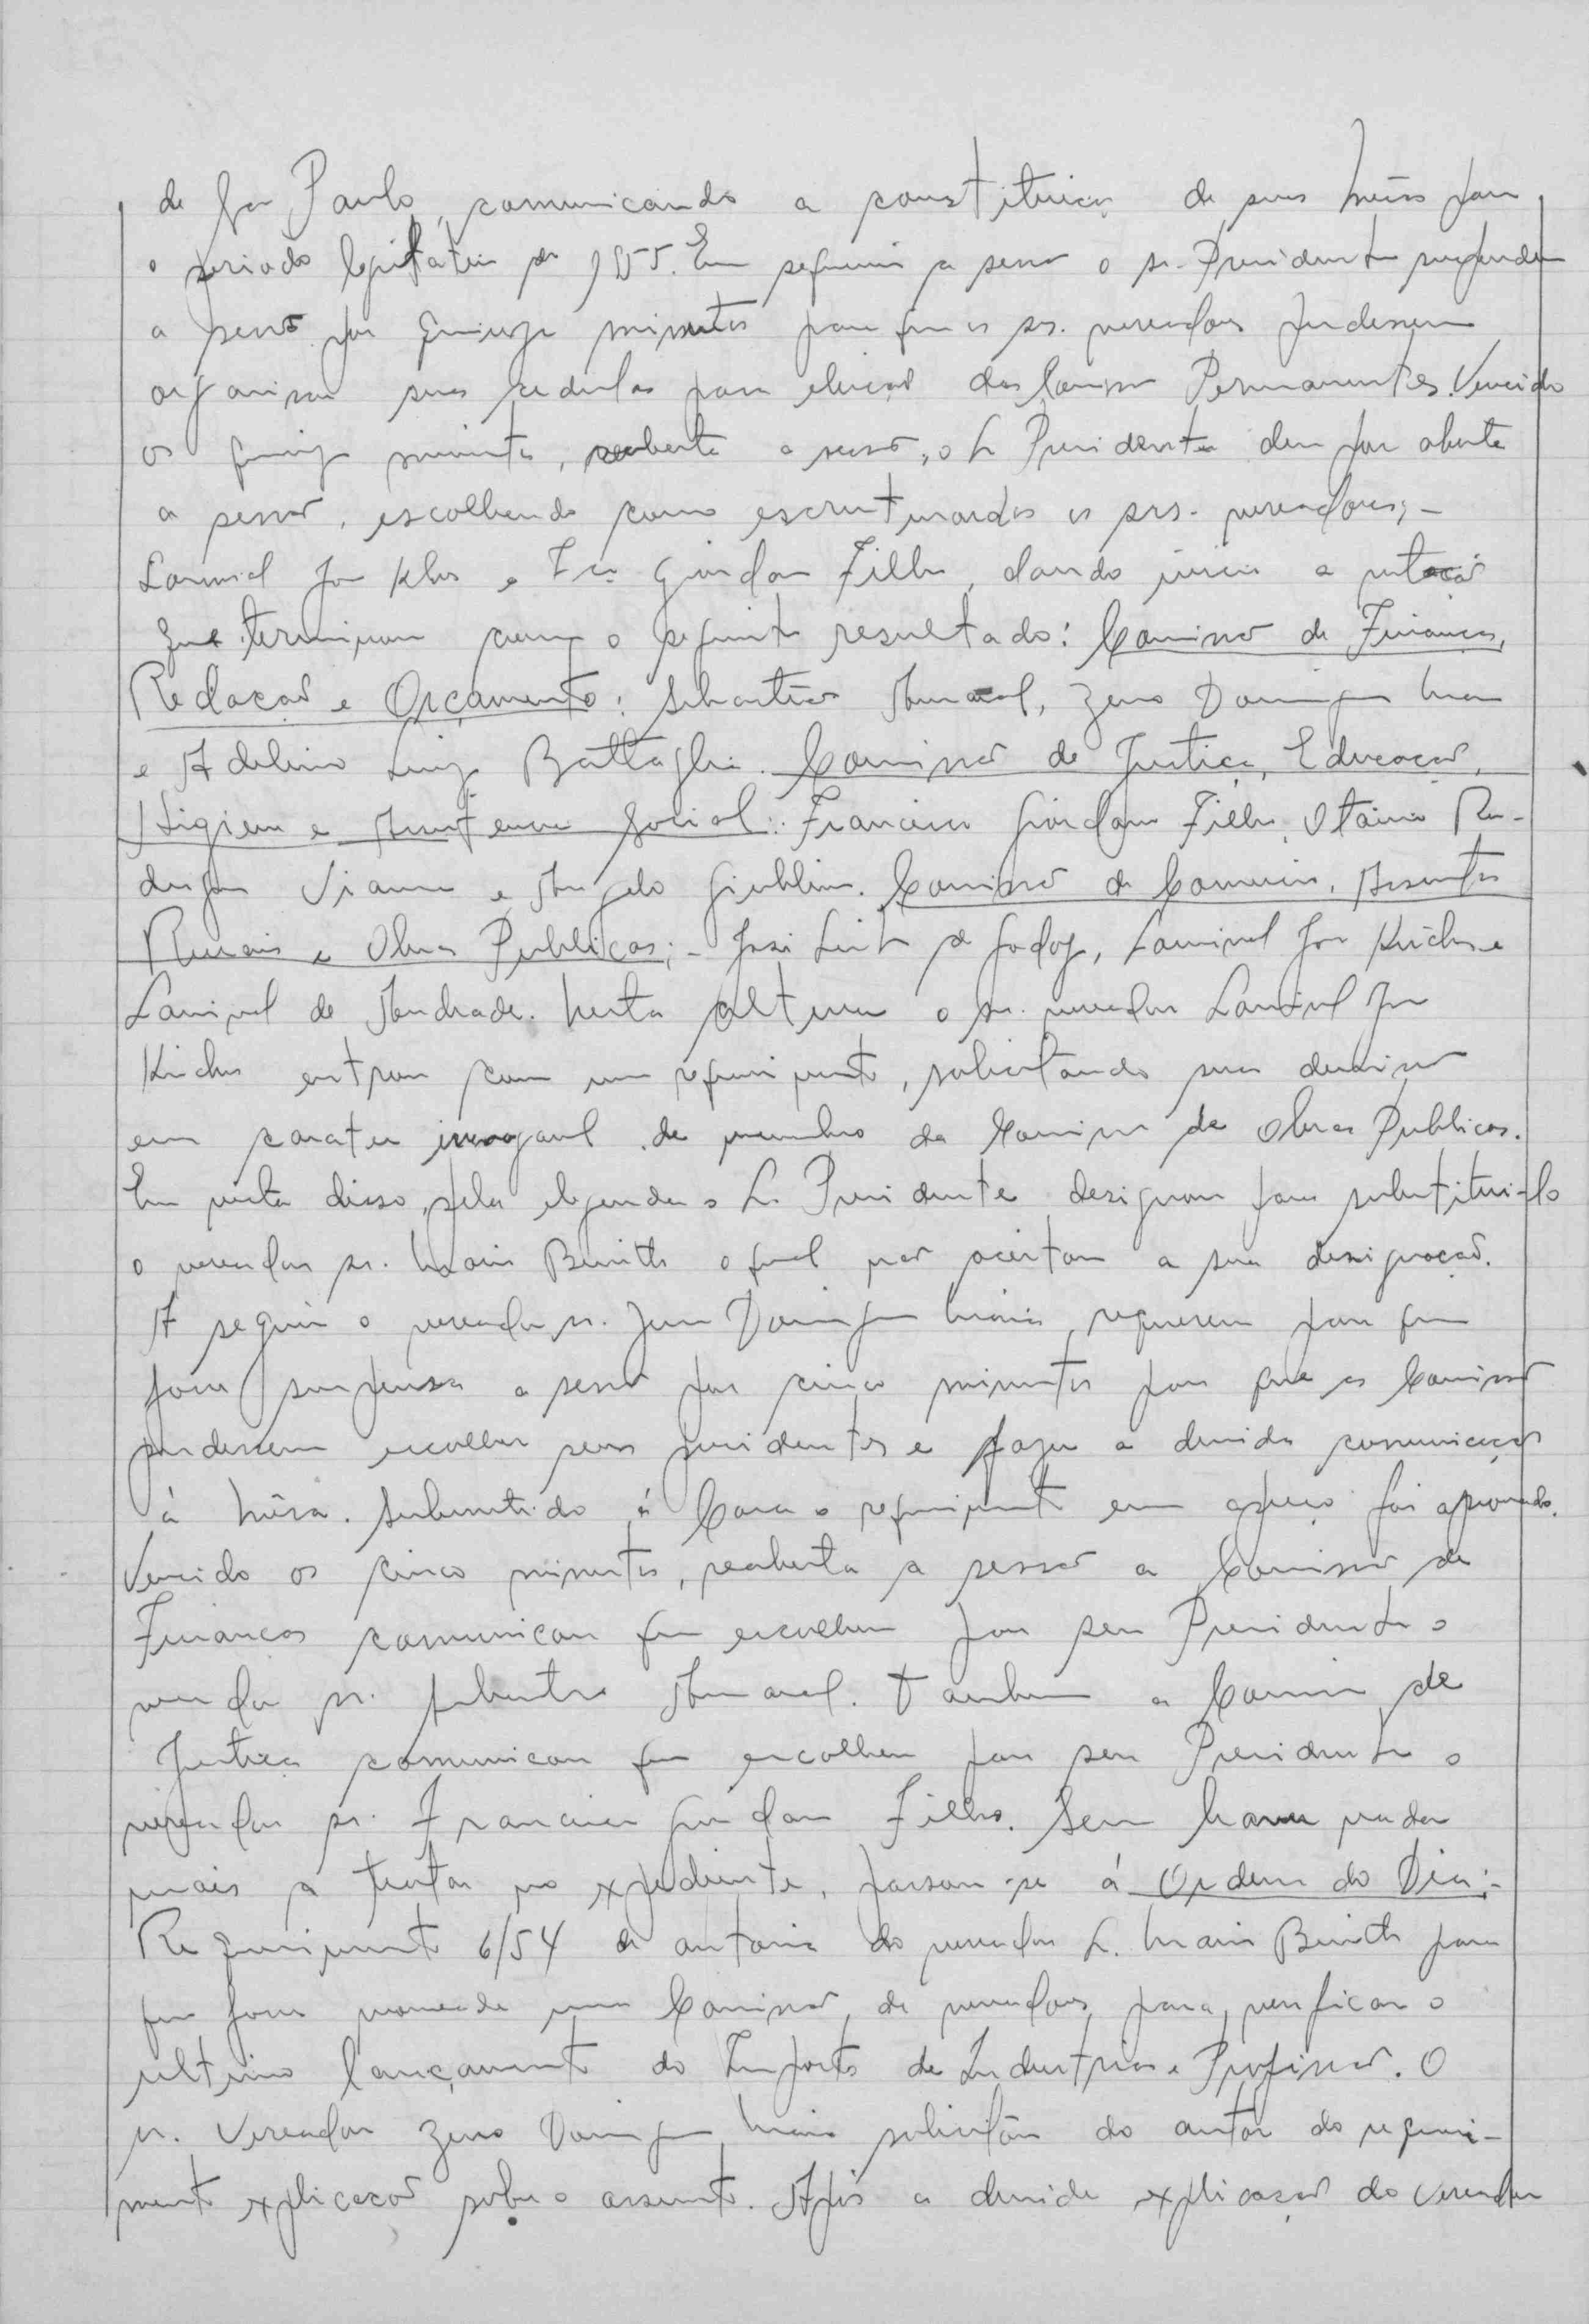 de São Paulo, comunicando a constituição de suas Mêsas para
o periodo legislativo de 1955. Em seguida a sessão o sr. Presidente suspendeu
a sessão por quinze minutos para que os srs. vereadores pudessem
organisar suas cedulas para eleição das Comissões Permanentes. Vencido
os quinze minutos, reaberta a sessão, o Sr Presidente deu por aberta
a sessão, escolhendo como escruturadores os srs. vereadores;-
Lourival José e Giordano Filho, dando inicio a votação
que terminou com o seguinte resultado: Comissão de Finanças,
Redação e Orçamento: Sebastião Amaral, Zeno Domingues Maia
e Adelino Luiz Battaglia. Comissão de Justiça, Educação,
Higiene e Assistencia Social: Francisco Giordano Filho, Otavio Ro-
drigues Vianna e Angelo Giublim. Comissão de Comercio, Assuntos
Rurais e Obras Publicas;- José Leite de Godoy, Lourival José e
Lourival de Andrade. Nesta altura o sr. vereador Lourival José
entrou com um requerimento, solicitando sua demissão
em carater irrevogavel de membro da Comissão de Obras Publicas.
Em vista disso, pela legenda o Sr Presidente designou para substitui-lo
o vereador sr. Mario o qual não aceitou a sua designação.
A seguir o vereador sr. Zeno Domingues Maia, requereu para que
fosse suspensa a sessão por cinco minutos para que as Comissões
pudessem escolher seus presidentes e fazer a devida comunicação
á Mêsa. Submetido á Casa o requerimento em apreço foi aprovado.
Vencido os cinco minutos, reaberta a sessão a Comissão de
Finanças comunicou que escolheu para seu Presidente o
vereador sr. Sebastião Amaral. Tambem a Comissão de
Justiça comunicou que escolheu para seu Presidente o
vereador sr. Francisco Giordano Filho. Sem haver nada
mais a tratar no expediente, passou-se á Ordem do Dia:-
Requerimento 6/54 de autoria do vereador Sr. Mario para
que fosse nomeada uma Comissão de vereadores, para verificar o
ultimo lançamento do Imposto de Industrias e Profissão. O
sr. Vereador Zeno Domingues Maia solicitou do autor do requeri-
mento explicação sobre o assunto. Após a devida explicação do vereador